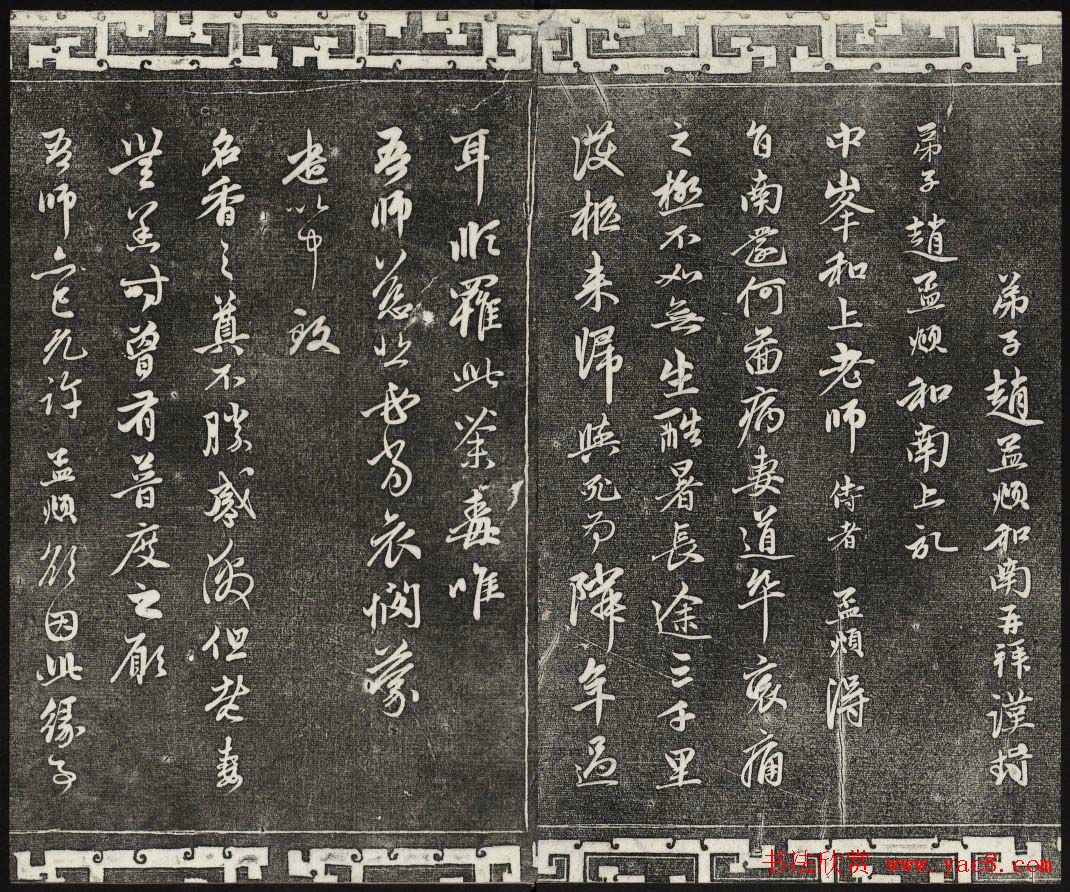 弟子趙孟頫和南再拜謹封
弟子趙孟頫和南上記
中峯和上老師侍者孟頫得
旨南還何啚病妻道卒哀痛
之極不如無生酷暑長途三千里
護柩来歸與死為隣年過
耳順罹此荼毒唯
吾師慈悲必當哀憫蒙
遣以中致
名香之奠不勝感激但老妻
無恙時曾有普度之願
吾師亦已允許孟頫欲因此緣
书法欣赏 www.yac8.com